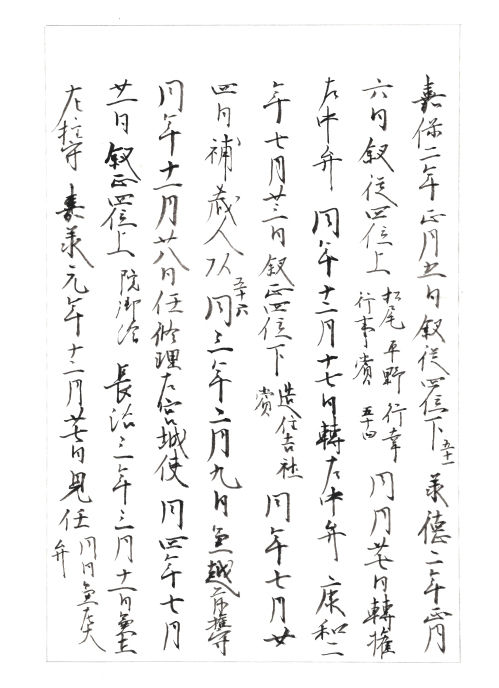 嘉保二年正月五日叙従四位下五十一承徳二年正月
六日叙従四位上松尾平野行幸行事賞五十四同月廿七日轉権
左中弁同年十二月十七日轉左中弁康和二
年七月廿三日叙正四位下造住吉社賞同年七月廿
四日補蔵人頭五十六同三年二月九日兼越前権守
同年十一月廿八日任修理左宮城使同四年七月
廿一日叙正四位上院御給長治三年三月十一日兼
左拉守嘉承元年十二月廿七日見任弁同日兼左大